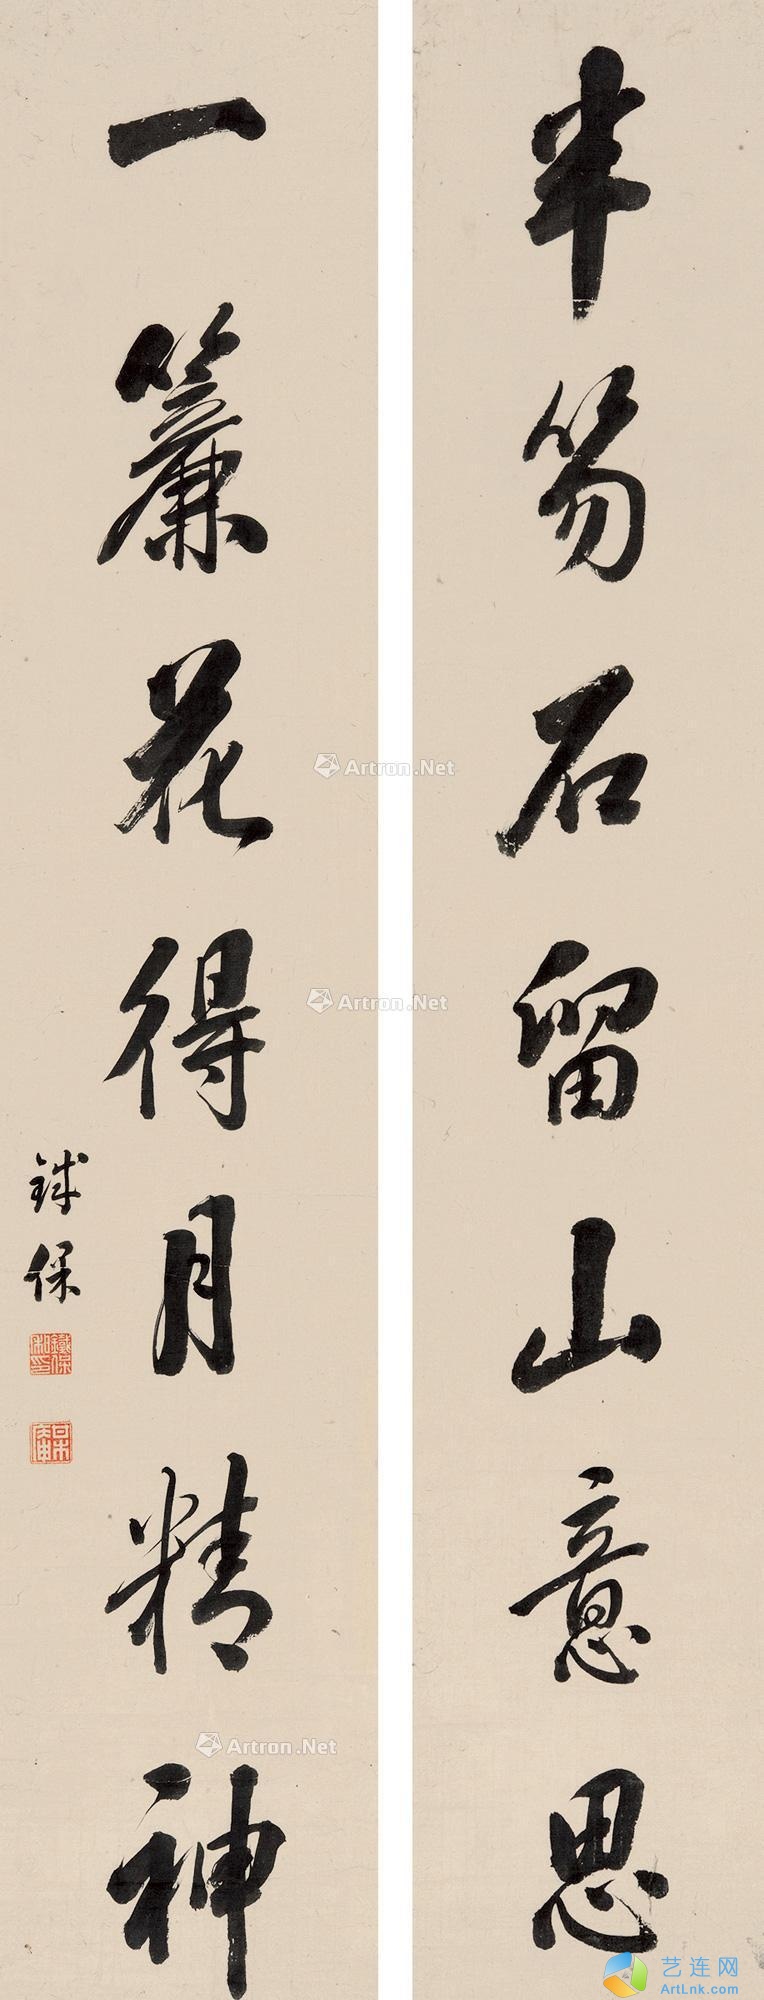 半笏石留山意思
一簾花得月精神
鐵保
Artron.Net
Artron.Net
Artron.Net
艺连网
ArtLnk.com